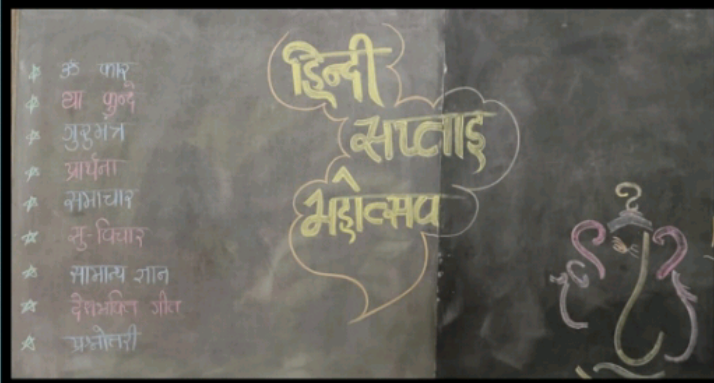 ॐ कार
या कुन्दे
गुरुमंत्र
प्रार्थना
समाचार
सु-विचार
सामान्य ज्ञान
देशभक्ति गीत
प्रश्नोत्तरी
हिन्दी
सप्ताह
महोत्सव